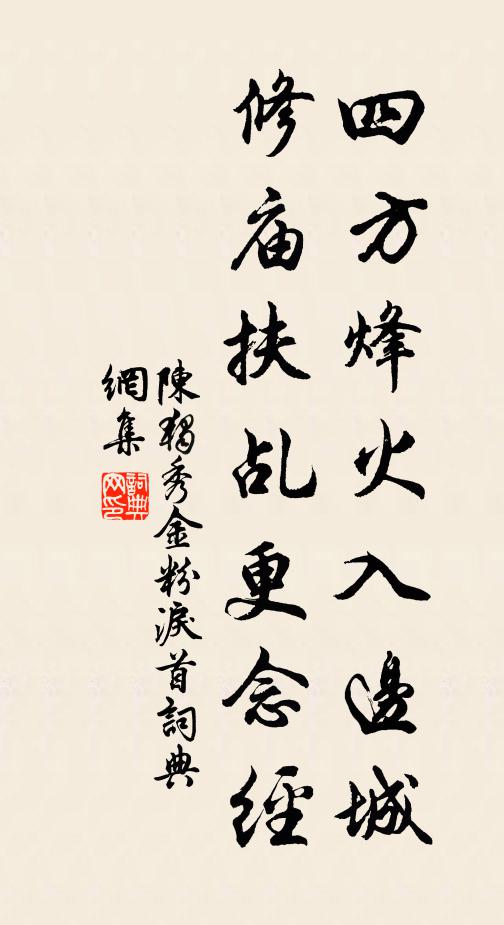 四方烽火入邊城
修庙扶乩更念經
陳獨秀金粉淚首詞典
網集
詞典網印